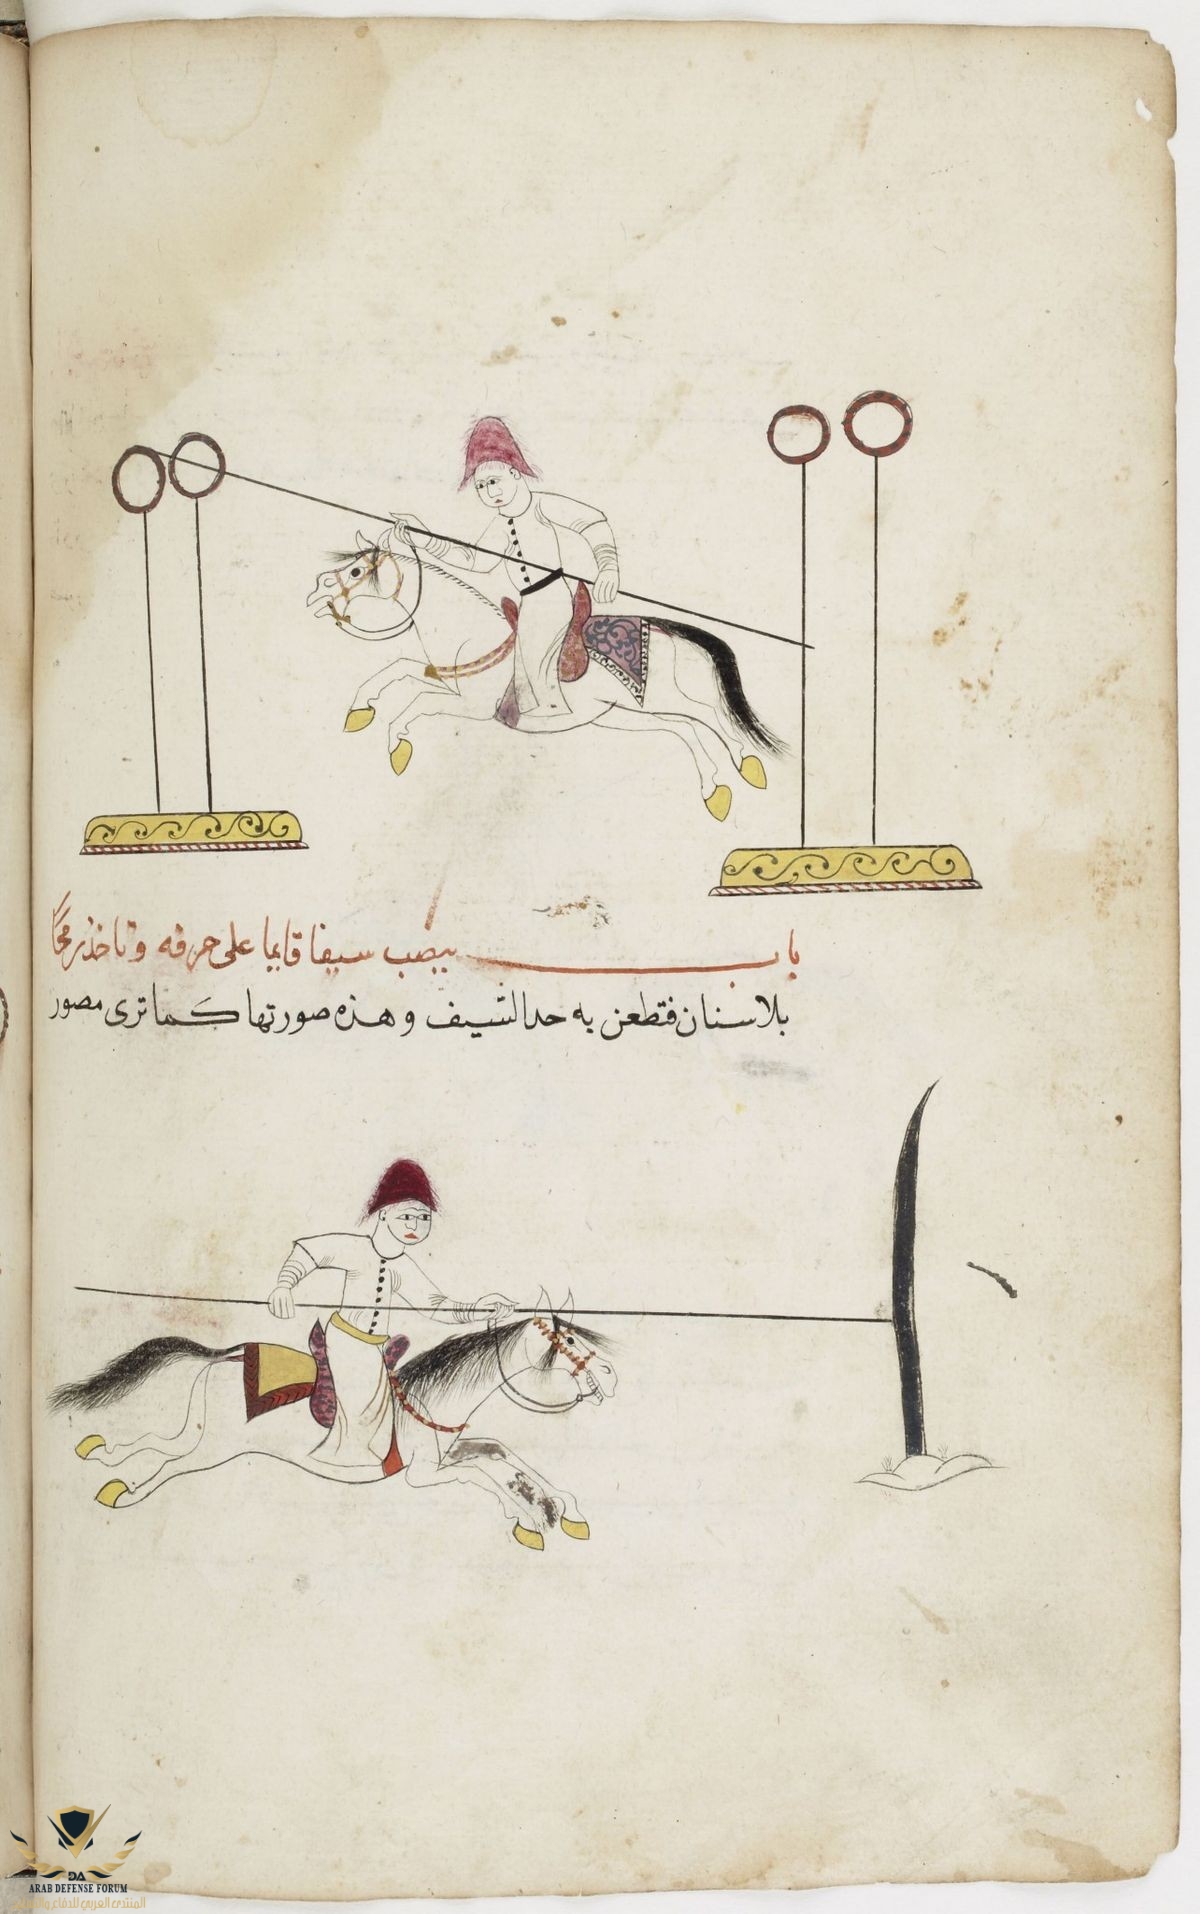 باب ينصب سيفا قايما على حرفه وتاخذ رمحا
بلا سنان فتطعن به حد السيف وهذه صورتها كما ترى مصور
DA
ARAB DEFENSE FORUM
المنتدى العربي للدفاع والتسليح